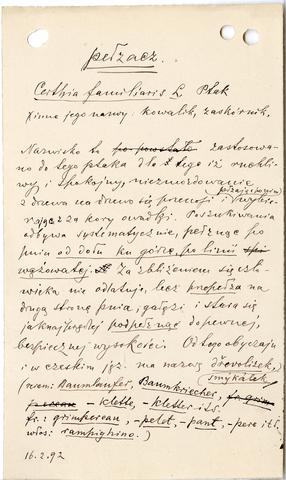 pełzacz.
Certhia familiaris L. Ptak
Zinne jego nazwy: kowalik, zaskórnik,
Nazwisko to po powstało zastosowa-
no do tego ptaka dla tego iż ruchli-
wy i spokojny, niezmordowanie
z drzewa na drzewo się przenosi i wybie-
rając z za kory owadki. Poszukiwania
odbywa systematycznie, pełznąc po
pniu od dołu ku górze, po linii
wężowatej. Za zbliżeniem się czło-
wieka nie odlatuje, lecz przepełza na
drugą stronę pnia, gałęzi i stara się
jaknajprędzej podpełznąć do pewnej,
bezpiecznej wysokości. Od tego obyczaju
i w czeskim jęz. ma nazwę dřevolizek,
smykálek,
(niem: Baumlaufer, Baumkriecher,
- klette, - kletter its.
fr: grimpereau, - pelet, - pant, - pere its.
włos: rampighino.)
16.2.92